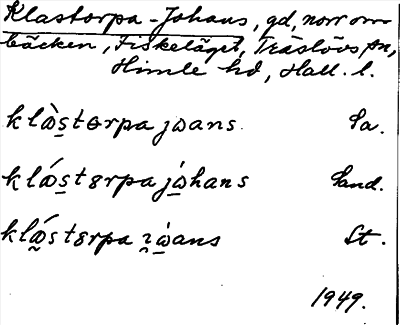 Klastorpa-Johans, gd, norr om
bäcken, Fiskeläget, Träslövs sn,
Himle hd, Hall. l.
klɷ̀s̲tɵrpa jɷans. Sa.
klɷ́s̲tɞrpa jɷ́hans Sand.
klɷ́s̲tɞrpa ɷ́ans St.
1949.